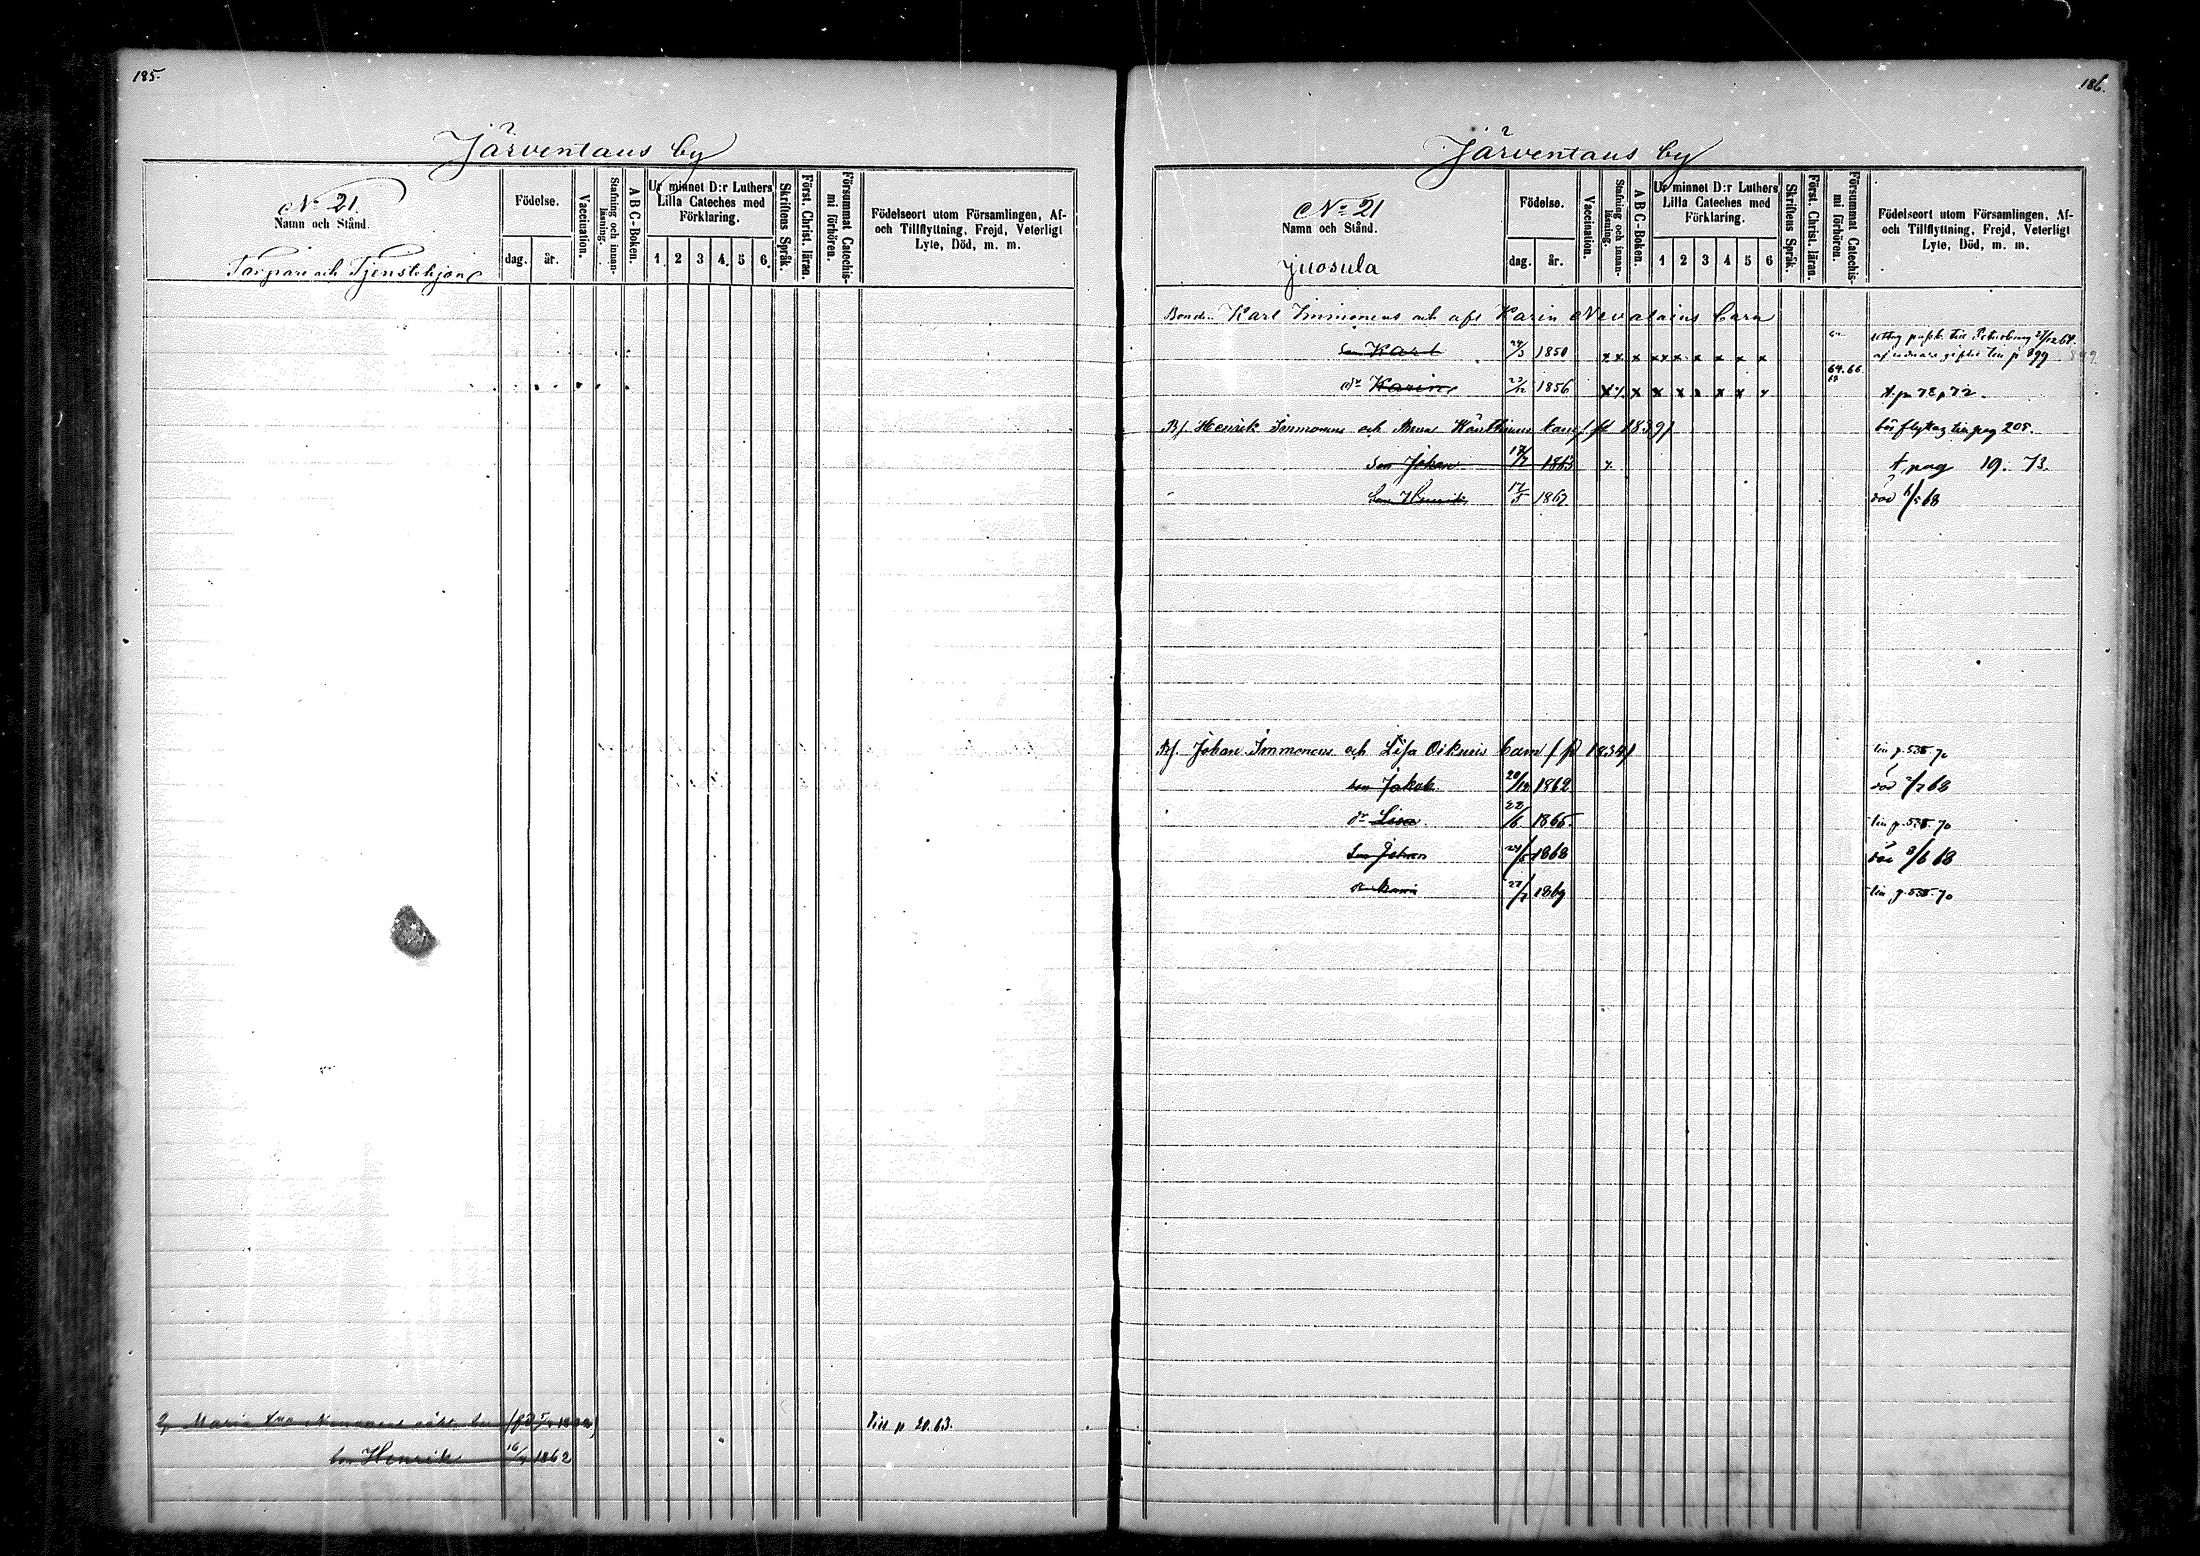 185.
Järventaus by
No 21.
Namn och Stånd.
Torpare och Tjenstehjon
Födelse.
dag. år.
Vaccination.
Stafning och innanläsning.
A B C-Boken.
Ur minnet D:r Luthers
Lilla Cateches med
Förklaring.
1. 2 3 4. 5 6.
Skriftens Språk.
Först. Christ. läran.
Försummat Catechismi förhören.
Födelseort utom Församlingen, Af-
och Tillflyttning, Frejd, Veterligt
Lyte, Död, m. m.
Maria till p 20.63.
son Henrik 16/ 1862
186.
Järventaus by
No 21
Namn och Stånd.
Juosula
Födelse.
dag. år.
Vaccination.
Stafning och innanläsning.
A B C-Boken.
Ur minnet D:r Luthers
Lilla Cateches med
Förklaring.
1 2 3 4 5 6
Skriftens Språk.
Först. Christ. läran.
Försummat Catechismi förhören.
Födelseort utom Församlingen, Af-
och Tillflyttning, Frejd, Veterligt
Lyte, Död, m. m.
Bonden Karl Immonens och afl Karin Nevalains barn
son Karl 24/3 1850 x x x x x x x x x x
dr Karin 1856 x x x x x x x x x 64.66.
Bf. Henrik Immonens och Anna barn (fd 1839) pag 205.
son Johan 1863 x pag 19. 73.
son Henrik 17/5 1867 död /5 68
Bf. Johan Immonens och Lisa Oikuris barn (fd 1834) till p. 535. 70
son Jakob 20/12 1862 död 2/2 68
dr Lisa 22/6 1865. till p. 535. 70
son Johan 24/5 1868 död 8/6 68
dr Karin 27/7 1869 till p. 535. 70